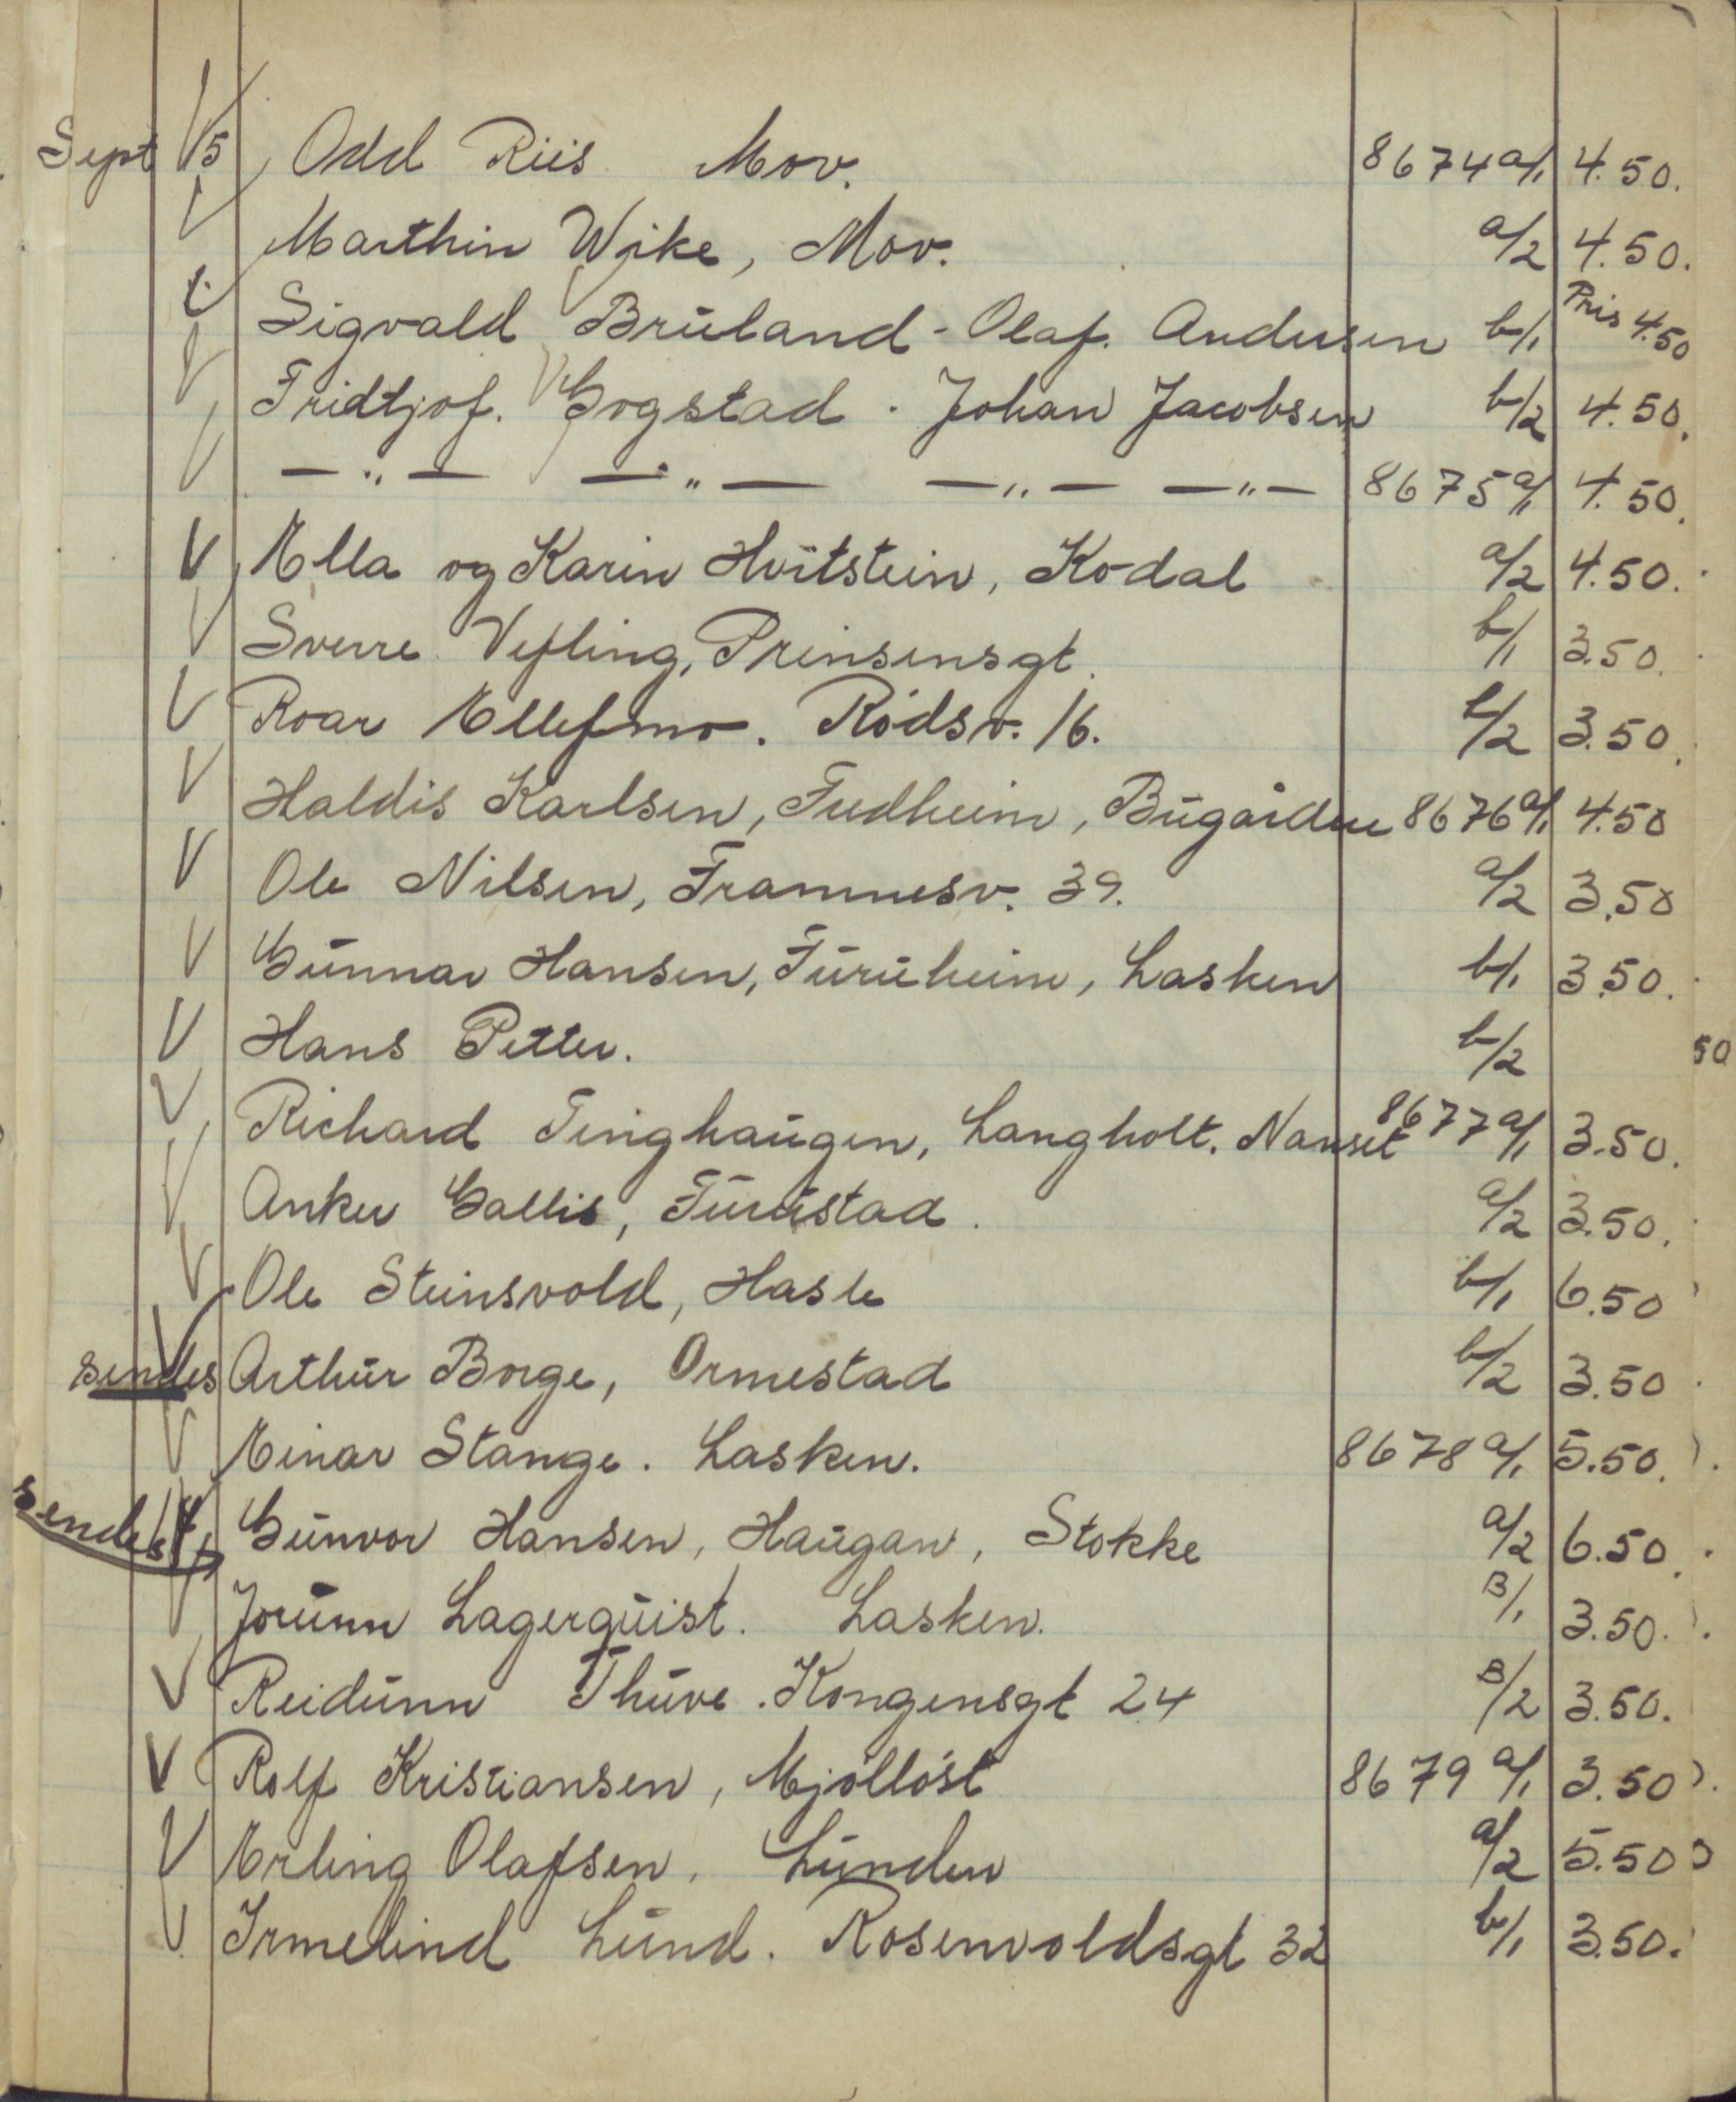 Sept 15 Odd Riis Mov. 8674 a/1 4.50.
Marthin Wike, Mov. a/2 4.50.
Sigvald Bruland - Olaf. Andersen b/1 Pris 4.50
Fridtjof. Gogstad. Johan Jacobsen b/2 4.50.
— " — — " — — " — — " — 8675 a/1 4.50.
Ella og Karin Hvitstein, Kodal a/2 4.50.
Sverre Vefling, Prinsensgt. b/1 3.50.
Roar Ellefmo. Rödsv. 16. b/2 3.50.
Haldis Karlsen, Fredheim, Bugården 8676 a/1 4.50
Ole Nilsen, Framnesv. 39. a/2 3.50
Gunnar Hansen, Furuheim, Lasken b/1 3.50.
Hans Petter. b/2
Richard Tinghaugen, Langholt. Nanset 8677 a/1 3.50.
Anker Gallis, Furustad. a/2 3.50.
Ole Steinsvold, Hasle b/1 6.50
sendes Arthur Borge, Ormestad b/2 3.50
Einar Stange. Lasken. 8678 a/1 5.50.
sendes Gunvor Hansen, Haugan, Stokke a/2 6.50.
Jorunn Lagerquist. Lasken. B/1 3.50.
Reidunn Thuve. Kongensgt 24 B/2 3.50.
Rolf Kristiansen, Mjöllöst 8679 a/1 3.50
Erling Olafsen. Lunden a/2 5.50
Irmelind Lund. Rosenvoldsgt 32 b/1 3.50.